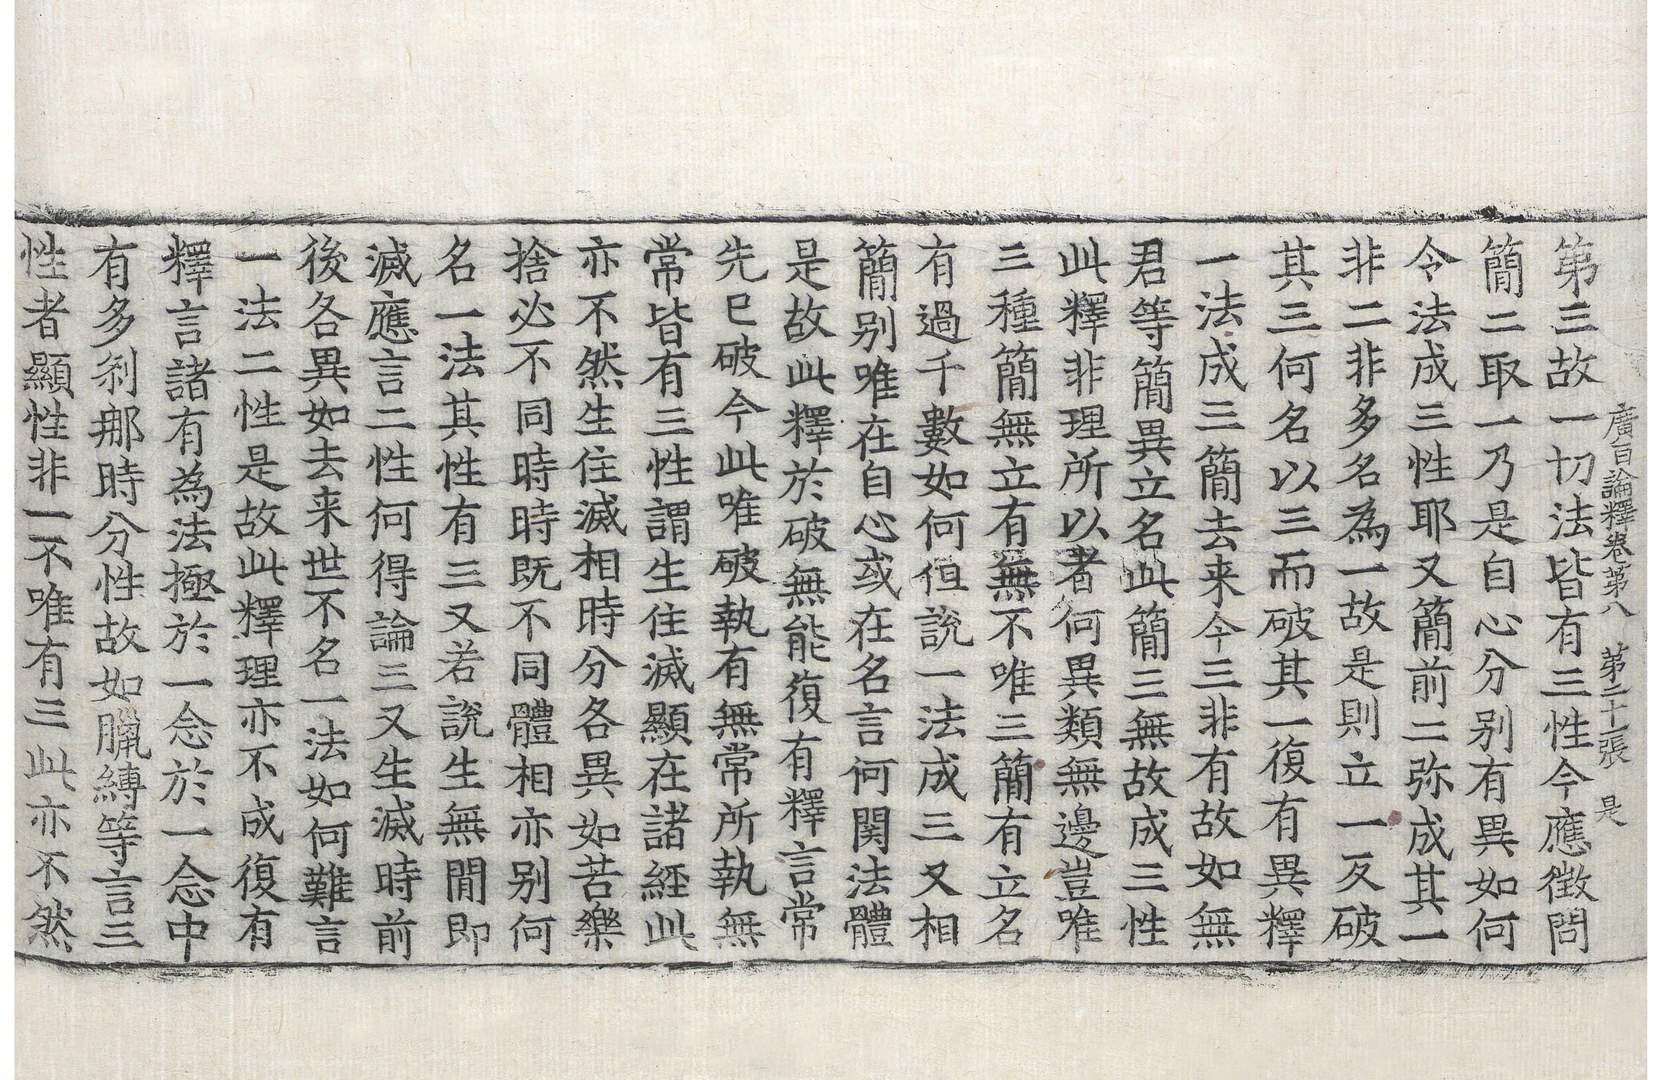 廣百論釋卷第八　第二十一張　是
第三故一切法皆有三性今應徵問
簡二取一乃是自心分别有異如何
令法成三性耶又簡前二弥成其一
非二非多名為一故是則立一反破
其三何名以三而破其一復有異釋
一法成三簡去来今三非有故如無
君等簡異立名此簡三無故成三性
此釋非理所以者何異類無邊豈唯
三種簡無立有無不唯三簡有立名
有過千數如何但說一法成三又相
簡别唯在自心或在名言何関法體
是故此釋於破無能復有釋言常
先已破今此唯破執有無常所執無
常皆有三性謂生住滅顯在諸經此
亦不然生住滅相時分各異如苦樂
捨必不同時時既不同體相亦别何
名一法其性有三又若說生無間即
滅應言二性何得論三又生滅時前
後各異如去来世不名一法如何難言
一法二性是故此釋理亦不成復有
釋言諸有為法極於一念於一念中
有多剎那時分性故如臘縛等言三
性者顯性非一不唯有三此亦不然